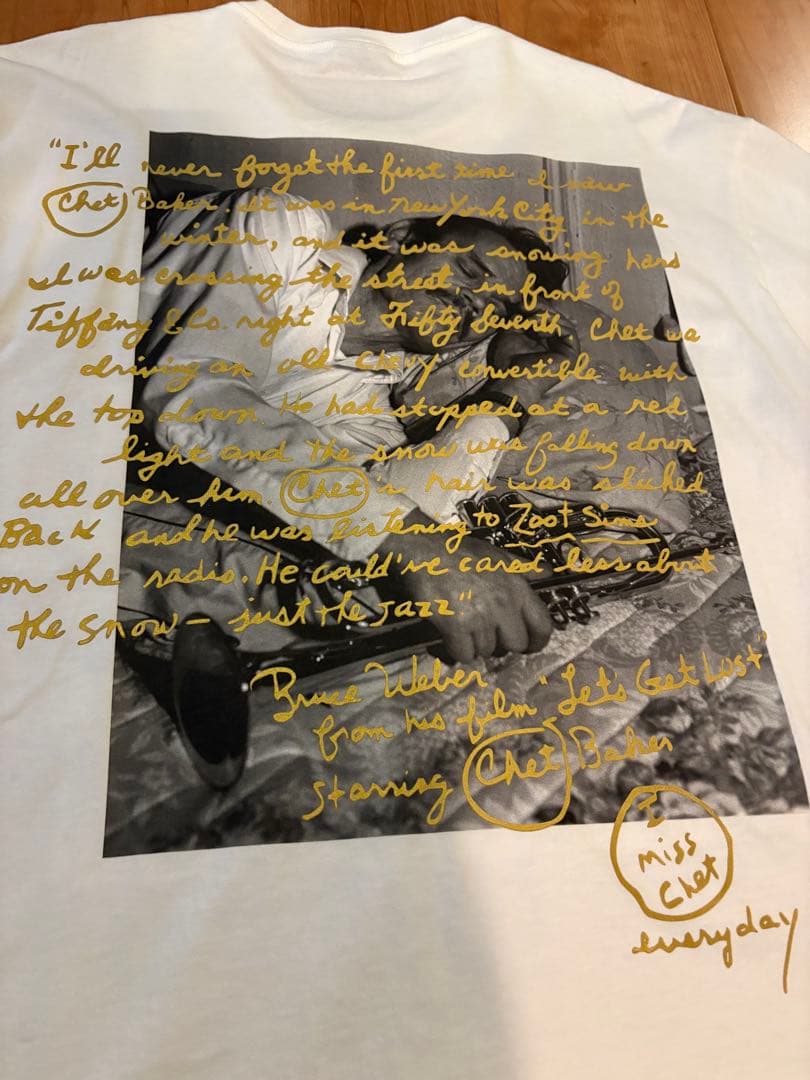 "I'll never forget the first time I saw
Chet Baker. It was in New York City in the
winter, and it was snowing hard
I was crossing the street, in front of
Tiffany & Co. right at Fifty Seventh. Chet wa
driving an old Chevy convertible with
the top down. He had stopped at a red
light and the snow was falling down
all over him. Chet's hair was slicked
Back and he was listening to Zoot Sims
on the radio. He could've cared less about
the snow - just the Jazz"
Bruce Weber
from his film "Let's Get Lost"
starring Chet Baker
I
miss
Chet
everyday